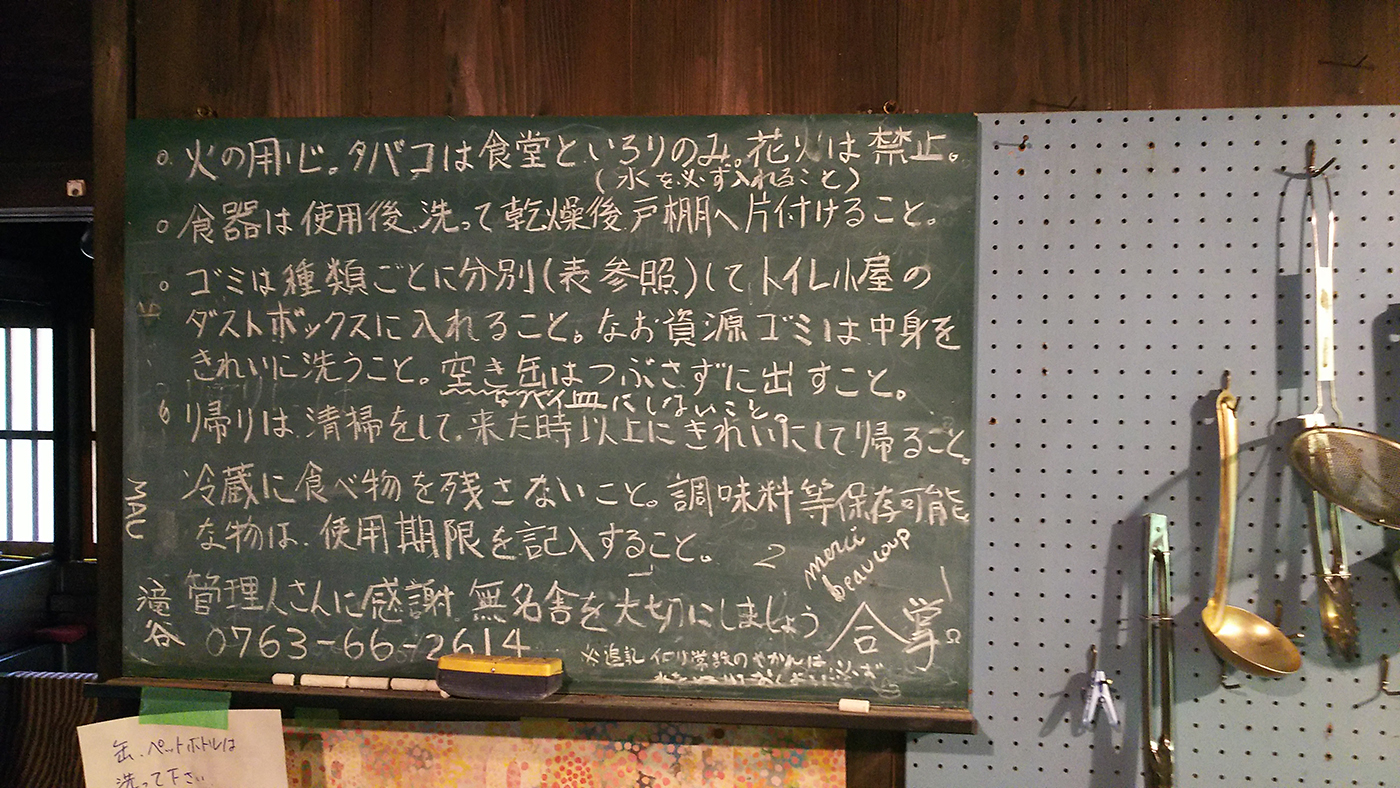 ○ 火の用心。タバコは食堂といろりのみ。花火は禁止。
(水を必ず入れること)
○ 食器は使用後、洗って乾燥後、戸棚へ片付けること。
○ ゴミは種類ごとに分別(表参照)してトイレ小屋の
ダストボックスに入れること。なお資源ゴミは中身を
きれいに洗うこと。空き缶はつぶさずに出すこと。
灰皿にしないこと。
○ 帰りは、清掃をして、来た時以上にきれいにして帰ること。
冷蔵に食べ物を残さないこと。調味料等保存可能
な物は、使用期限を記入すること。
MAU
2
merci
beaucoup
管理人さんに感謝 無名舎を大切にしましょう
滝谷
0763-66-2614
合掌
※追記
缶、ペットボトルは
洗って下さい